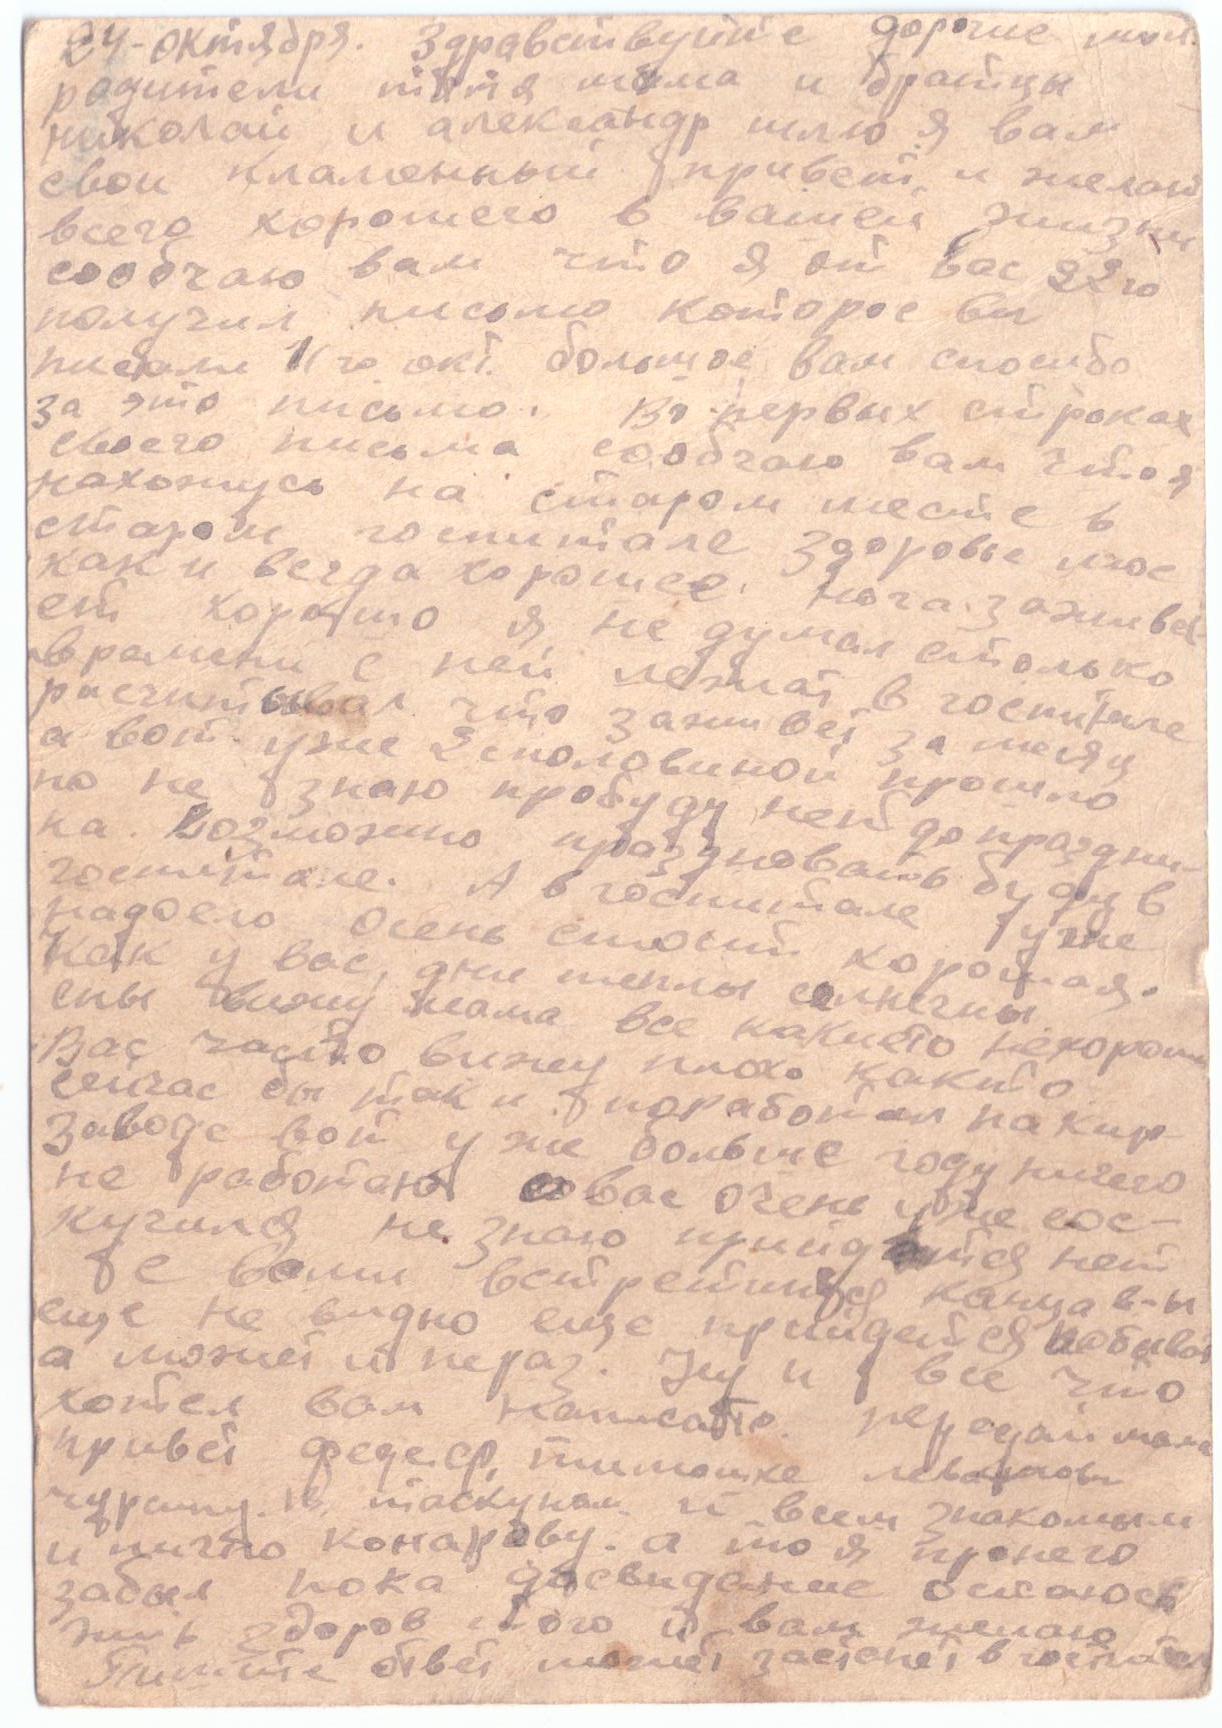 24-октября. Здравствуйте дорогие мои
родители тятя мама и братцы
николай и александр шлю я вам
свои кламенный привет и желаю
всего хорошего в вашей жизни
сообчаю вам что я от вас 22го
получил письмо которое вы
писали 11го окт. большое вам спосибо
за это письмо. Во-первых строках
своего письма сообчаю вам что я
нахожусь на старом месте в
старом госпитале здоровье мое
как и всегда хорошее. Нога заживва-
ет хорошо я не думал столько
времени с ней лежат в госпитале
расчитывал что заживет за месяц
а вот уже 2 споловиной прошло
но не знаю пробуду нет до праздни-
ка. Возможно праздновать буду в
госпитале. А в госпитале уже
надоело осень стоит хорошая.
как у вас, дни теплы солнечны.
сны вижу мама все какието нехороши
Вас часто вижу плохо както.
сейчас бы так и поработал на кир-
заводе вот уже больше году ничего
не работаю о вас очень уже сос-
кучился не знаю прийдется нет
с вами встретится канца в-ы
еще не видно еще прийдется побыват
а может и нераз. Ну и все что
хотел вам написать. передай мама
привет федеср, тимошке
таскуном и всем знакомым
и пичто конарову. а то я пронего
забыл пока досвидение остаюсь
жив здоров того и вам желаю
Пишите ответ может застанет в госпитал